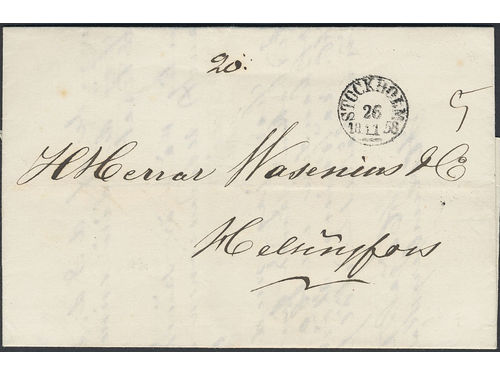 20:
STOCKHOLM
26
18 11 58
HHerrar Wasenius & Co
Helsingfors